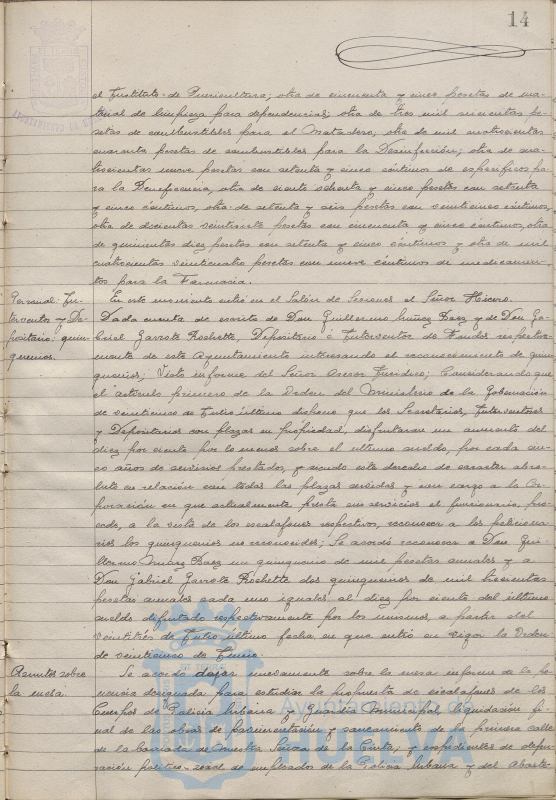 14
el Instituto de Puericultura; otra de cincuenta y cinco pesetas de ma-
terial de limpieza para dependencias; otra de tres mil pe-
setas de combustibles para el Matadero, otra de mil cuatrocientas
cuarenta pesetas de combustibles para la Desinfección; otra de cua-
trocientas nueve pesetas con setenta y cinco céntimos de específicos pa-
ra la Beneficencia, otra de ciento ochenta y cinco pesetas con setenta
y cinco céntimos, otra de setenta y seis pesetas con veinticinco céntimos,
otra de doscientas veintisiete pesetas con cincuenta y cinco céntimos, otra
de quinientas diez pesetas con setenta y cinco céntimos y otra de mil
cuatrocientas veinticuatro pesetas con nueve céntimos de medicamen-
tos para la Farmacia.
Personal: In-
terventor y De-
positario: quin-
quenios.
En este momento entró en el Salón de Sesiones el Señor
Dada cuenta de escrito de Don Guillermo Muñoz Baez y de Don Ga-
briel Garrote Rochette, Depositario é Interventor de Fondos respectiva-
mente de este Ayuntamiento interesando el reconocimiento de quin-
quenios; Visto informe del Señor Asesor Jurídico; Considerando que
el artículo primero de la Orden del Ministerio de la Gobernación
de veinticinco de Junio último dispone que los Secretarios, Interventores
y Depositarios con plazas en propiedad, disfrutaran un aumento del
diez por ciento, por lo menos sobre el ultimo sueldo, por cada cin-
co años de servicios prestados, y siendo este derecho de caracter abso-
luto en relación con todas las plazas servidas y con cargo a la Cor-
poración en que actualmente presta sus servicios el funcionario, pro-
cede, a la vista de los escalafones respectivos, reconocer a los peticiona-
rios los quinquenios no reconocidos; Se acordó reconocer a Don Gui-
llermo Muñoz Baez un quinquenio de mil pesetas anuales y a
Don Gabriel Garrote Rochette dos quinquenios de mil
pesetas anuales cada uno iguales al diez por ciento del último
sueldo disfrutado respectivamente por los mismos, a partir del
veintitrés de Julio último fecha en que entró en vigor la Orden
de veinticinco de Junio.
Asuntos sobre
la mesa.
Se acordó dejar nuevamente sobre la mesa informe de la po-
nencia designada para estudiar la propuesta de escalafones de los
Cuerpos de Policía Urbana y Guardia Municipal, liquidación fi-
nal de las obras de pavimentación y saneamiento de la primera calle
de la barriada de Nuestra Señora de la Cinta, y expedientes de depu-
ración político-social de empleados de la Policía Urbana y del Abaste-